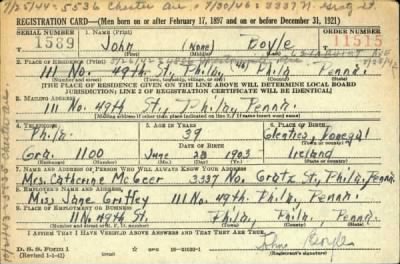 7/25/44-5536 Chester Ave 7/30/46: 3337 N. Gratz St.
REGISTRATION CARD—(Men born on or after February 17, 1897 and on or before December 31, 1921)
SERIAL NUMBER 1. NAME (Print) ORDER NUMBER
1589 John (None) Boyle 11515
(First) (Middle) (Last)
2. PLACE OF RESIDENCE (Print)
111 No. 49th St. Phila. (46) Phila. Penna.
(Number and street) (Town, township, village, or city) (County) (State)
[THE PLACE OF RESIDENCE GIVEN ON THE LINE ABOVE WILL DETERMINE LOCAL BOARD
JURISDICTION; LINE 2 OF REGISTRATION CERTIFICATE WILL BE IDENTICAL]
3. MAILING ADDRESS
111 No. 49th St., Phila., Penna.
[Mailing address if other than place indicated on line 2. If same insert word same]
4. TELEPHONE 5. AGE IN YEARS 6. PLACE OF BIRTH
Phila. 39 Glenties, Donegal
DATE OF BIRTH
Gra. 1100 June 28 1903 Ireland
(Exchange) (Number) (Mo.) (Day) (Yr.) (State or country)
7. NAME AND ADDRESS OF PERSON WHO WILL ALWAYS KNOW YOUR ADDRESS
Mrs. Catherine McGeer 3337 No. Gratz St., Phila., Penna.
8. EMPLOYER'S NAME AND ADDRESS
Miss Jane Griffey 111 No. 49th. Phila., Penna.
9. PLACE OF EMPLOYMENT OR BUSINESS
111 No. 49th St., Phila., Phila., Penna.
(Number and street or R. F. D. number) (Town) (County) (State)
I AFFIRM THAT I HAVE VERIFIED ABOVE ANSWERS AND THAT THEY ARE TRUE.
D. S. S. FORM 1
(Revised 1-1-42) John Boyle
(Registrant's signature)